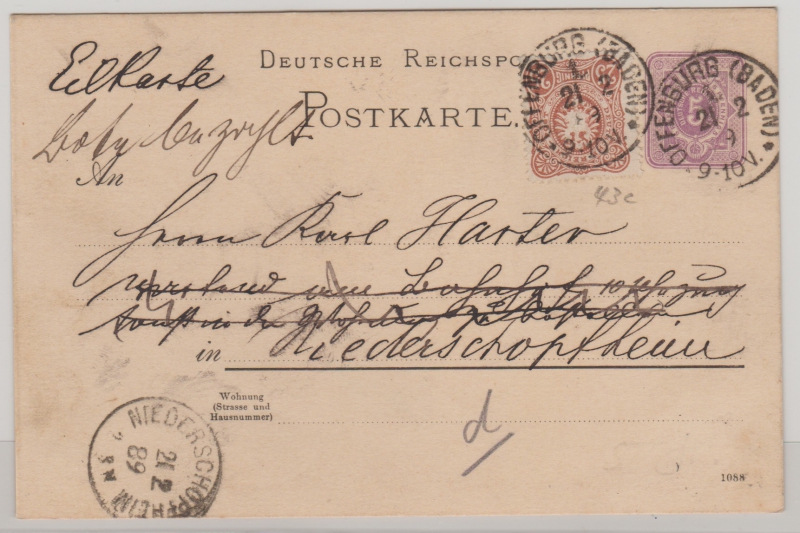 DEUTSCHE REICHSPO
Eilkarte
POSTKARTE.
Bote bezahlt
An
OFFENBURG (BADEN) *
21 2
9-10V.
OFFENBURG (BADEN) *
21 2
9
9-10V.
43c
Herrn Karl Harter
am Bahnhof
in Niederschopfheim
Wohnung
(Strasse und
Hausnummer)
d
NIEDERSCHOPFHEIM
21 2
89
8N
1088